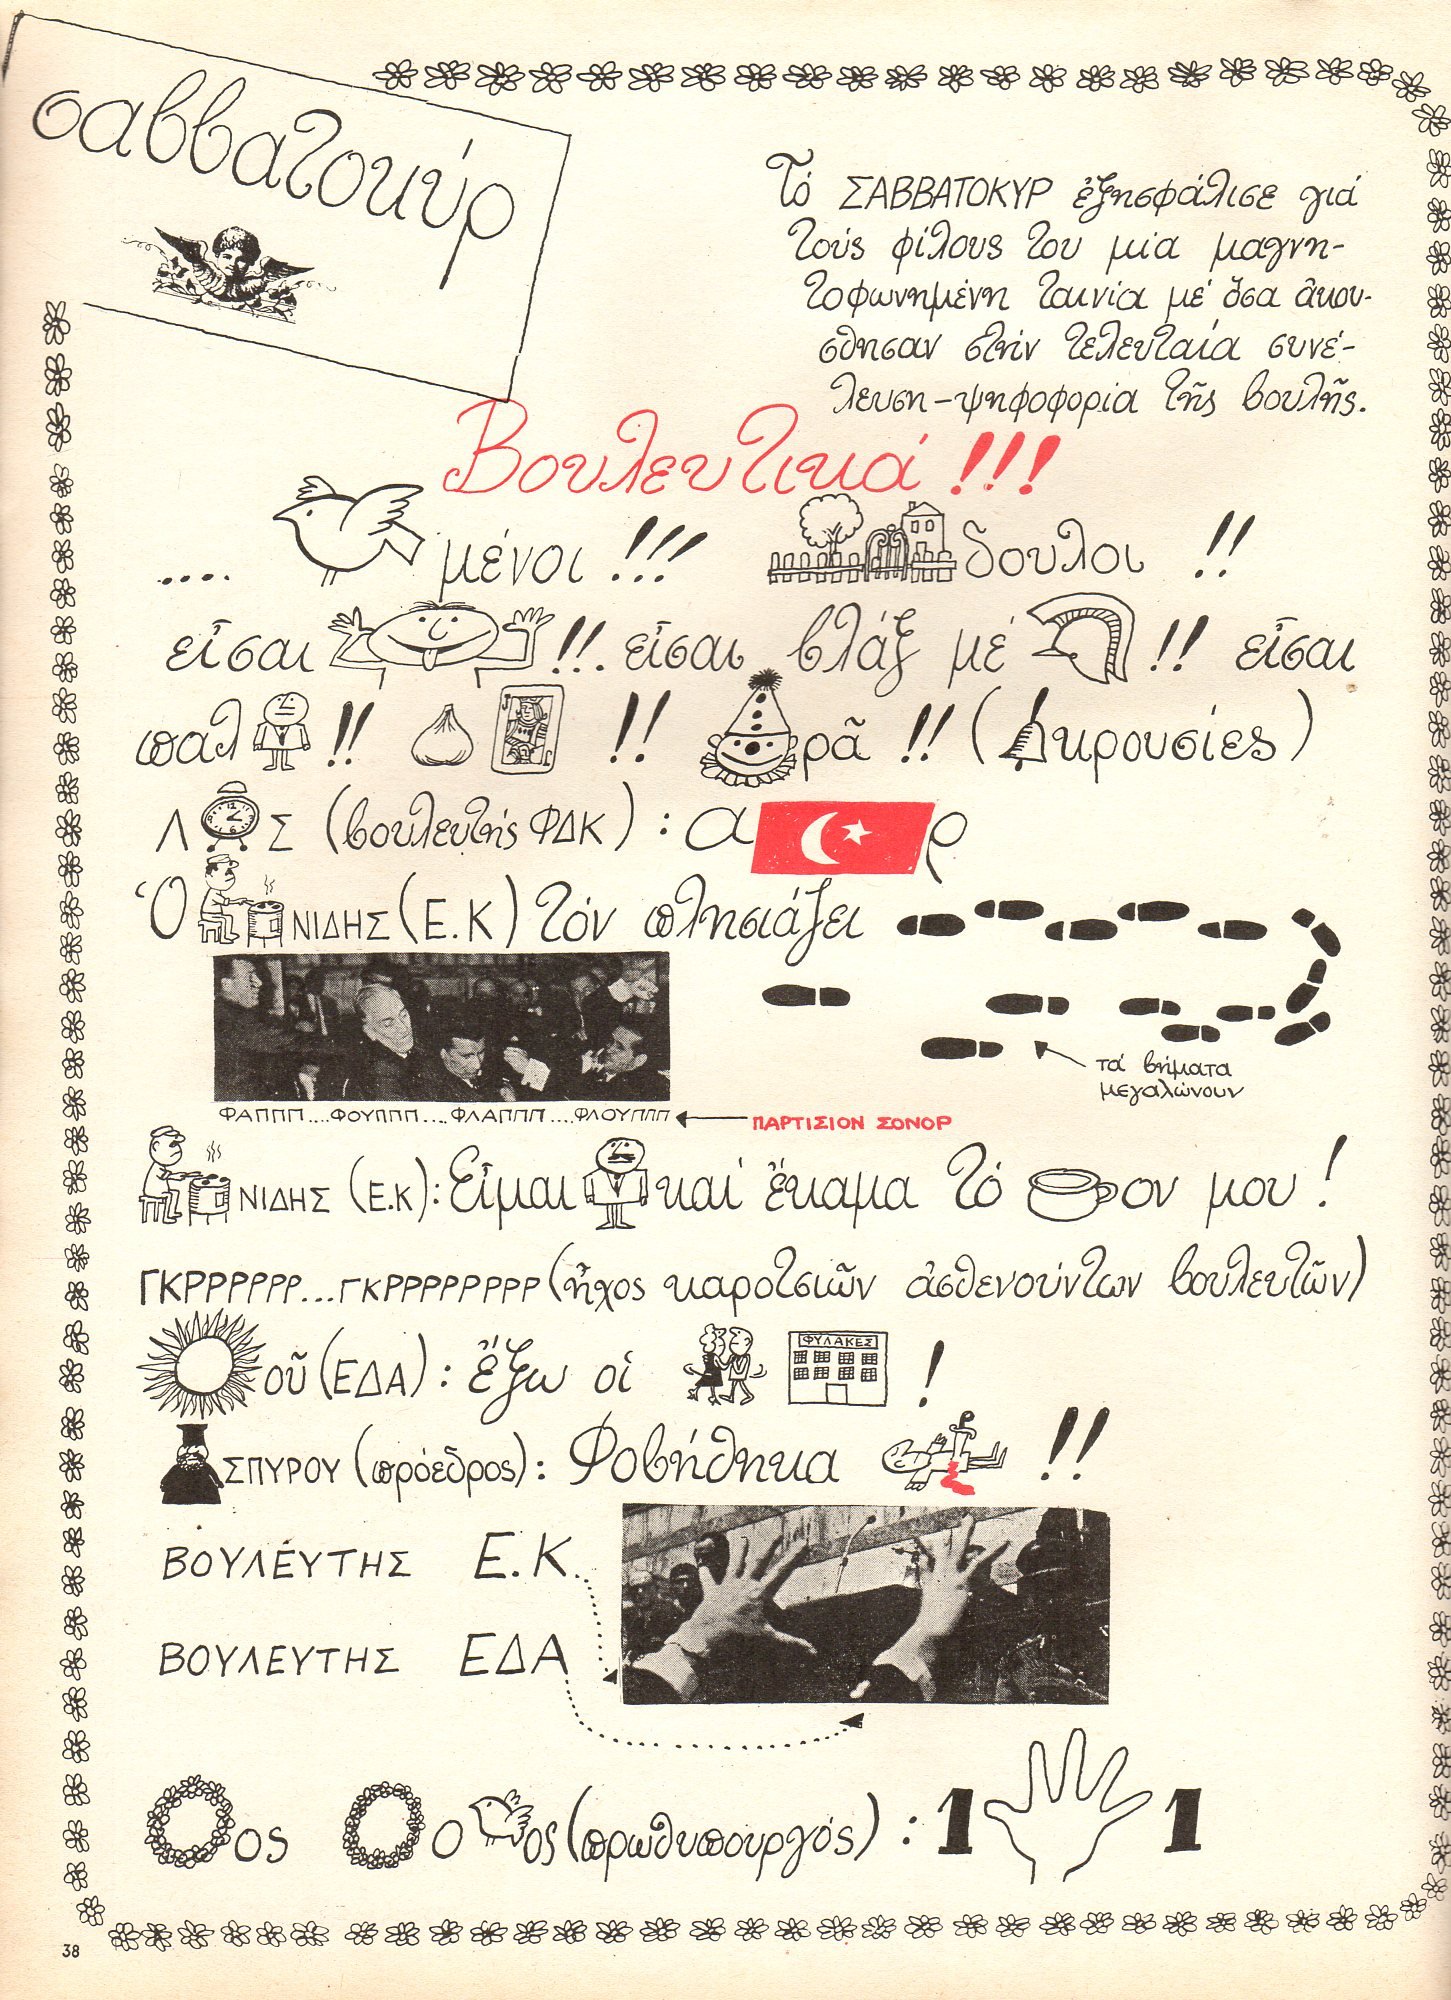 σαββατοκύρ
Τό ΣΑΒΒΑΤΟΚΥΡ ἐξησφάλισε γιά
τούς φίλους του μία μαγνη-
τοφωνημένη ταινία μέ ὅσα ἀκού-
σθησαν στήν τελευταία συνέ-
λευση-ψηφοφορία τῆς βουλῆς.
Βουλευτικά!!!
.... μένοι!!! δουλοι!!
εἶσαι !!. εἶσαι βλάξ μέ !! εἶσαι
παλ !! !! ρᾶ!! ( κρουσίες)
Λ Σ (βουλευτής ΦΔΚ): α ρ
Ὁ ΝΙΔΗΣ (Ε.Κ) τόν πλησιάζει
τά βήματα
μεγαλώνουν
ΦΑΠΠΠ....ΦΟΥΠΠΠ....ΦΛΑΠΠΠ....ΦΛΟΥΠΠΠ ΠΑΡΤΙΣΙΟΝ ΣΟΝΟΡ
ΝΙΔΗΣ (Ε.Κ): Εἶμαι καί ἔκαμα τό ον μου!
ΓΚΡΡΡΡΡΡ...ΓΚΡΡΡΡΡΡΡΡ (ἦχος καροτσιῶν ἀσθενούντων βουλευτῶν)
οῦ (ΕΔΑ): ἔξω οἱ ΦΥΛΑΚΕΣ !
ΣΠΥΡΟΥ (πρόεδρος): Φοβήθηκα !!
ΒΟΥΛΕΥΤΗΣ Ε.Κ.
ΒΟΥΛΕΥΤΗΣ ΕΔΑ
ος ο ος (πρωθυπουργός): 1 1
38